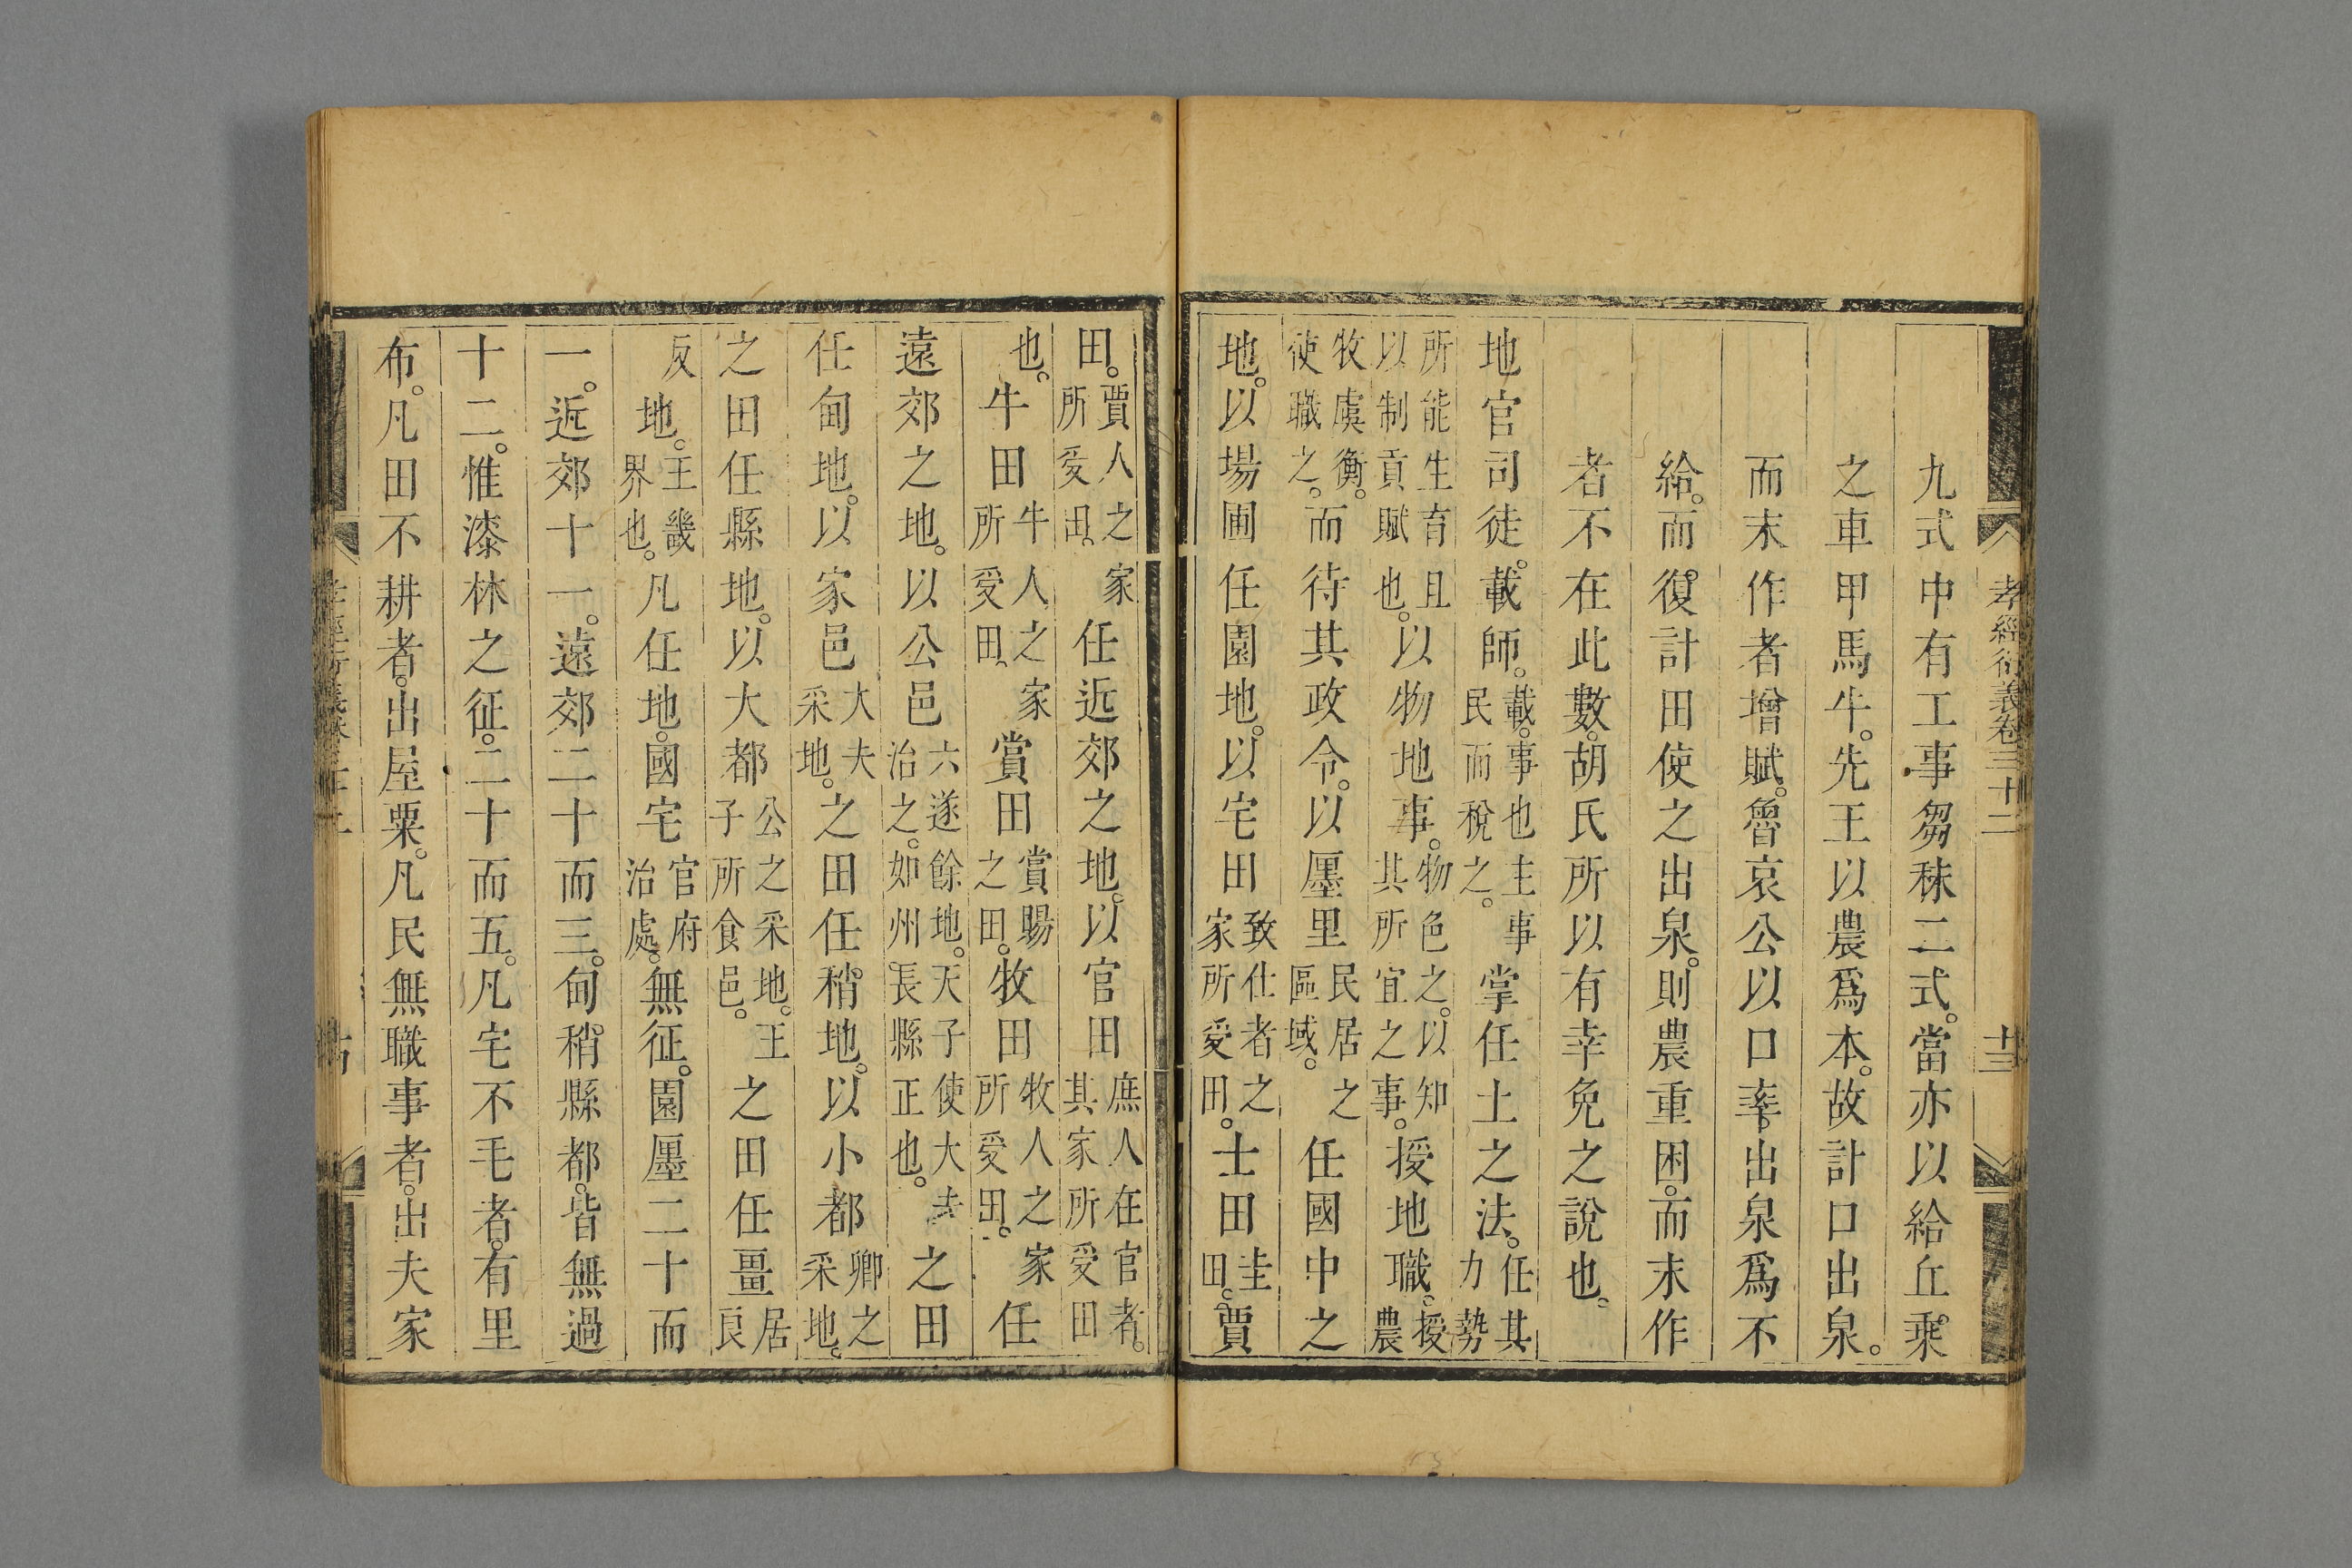 孝經衍義卷三十二 十三
九式中有工事芻秣二式。當亦以給丘乘
之車甲馬牛。先王以農爲本。故計口出泉。
而末作者增賦。魯哀公以口率出泉爲不
給。而復計田使之出泉。則農重困。而末作
者不在此數。胡氏所以有幸免之說也。
地官司徒。載師。載。事也主事民而稅之。掌任土之法。任其力勢
所能生育且以制貢賦也。以物地事。物色之。以知其所宜之事。授地職。授農
牧虞衡。使職之。而待其政令。以廛里民居之區域。任國中之
地。以場圃任園地。以宅田致仕者之家所受田。士田圭田。賈
田。賈人之家所受田。任近郊之地。以官田庶人在官者。其家所受田
也。牛田牛人之家所受田。賞田賞賜之田。牧田牧人之家所受田。任
遠郊之地。以公邑六遂餘地。天子使大夫治之。如州長縣正也。之田
任甸地。以家邑大夫采地。之田任稍地。以小都卿之采地。
之田任縣地。以大都公之采地。王子所食邑。之田任畺居良
反地。王畿界也。凡任地。國宅官府治處。無征。園廛二十而
一。近郊十一。遠郊二十而三。甸稍縣都。皆無過
十二。惟漆林之征。二十而五。凡宅不毛者。有里
布。凡田不耕者。出屋粟。凡民無職事者。出夫家